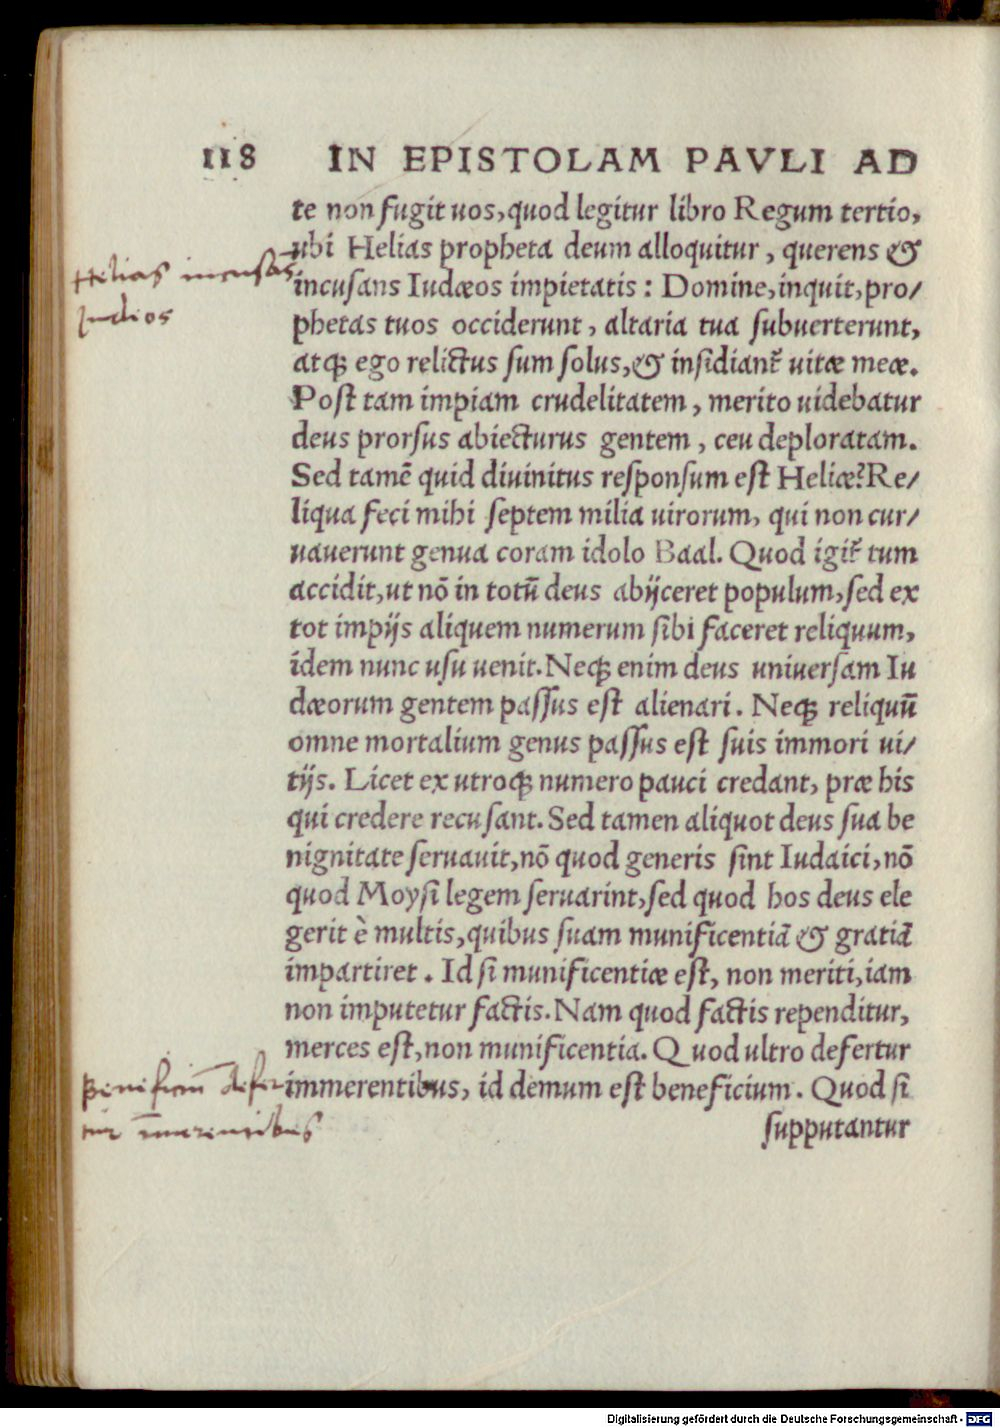 118 IN EPISTOLAM PAVLI AD
te non fugit uos, quod legitur libro Regum tertio,
ubi Helias propheta deum alloquitur, querens &
incusans Iudæos impietatis: Domine, inquit, pro/
phetas tuos occiderunt, altaria tua subuerterunt,
atq; ego relictus sum solus, & insidiant᷑ uitæ meæ.
Post tam impiam crudelitatem, merito uidebatur
deus prorsus abiecturus gentem, ceu deploratam.
Sed tamẽ quid diuinitus responsum est Heliæ? Re/
liqua feci mihi septem milia uirorum, qui non cur/
uauerunt genua coram idolo Baal. Quod igit᷑ tum
accidit, ut nõ in totũ deus abijceret populum, sed ex
tot impijs aliquem numerum sibi faceret reliquum,
idem nunc usu uenit. Neq; enim deus uniuersam Iu
dæorum gentem passus est alienari. Neq; reliquũ
omne mortalium genus passus est suis immori ui/
tijs. Licet ex utroq; numero pauci credant, præ his
qui credere recusant. Sed tamen aliquot deus sua be
nignitate seruauit, nõ quod generis sint Iudaici, nõ
quod Moysi legem seruarint, sed quod hos deus ele
gerit è multis, quibus suam munificentiã & gratiã
impartiret. Id si munificentiæ est, non meriti, iam
non imputetur factis. Nam quod factis rependitur,
merces est, non munificentia. Quod ultro defertur
immerentibus, id demum est beneficium. Quod si
supputantur
Helias incusās
Judios
Beneficiū defer
tur īmerentibus
Digitalisierung gefördert durch die Deutsche Forschungsgemeinschaft - DFG